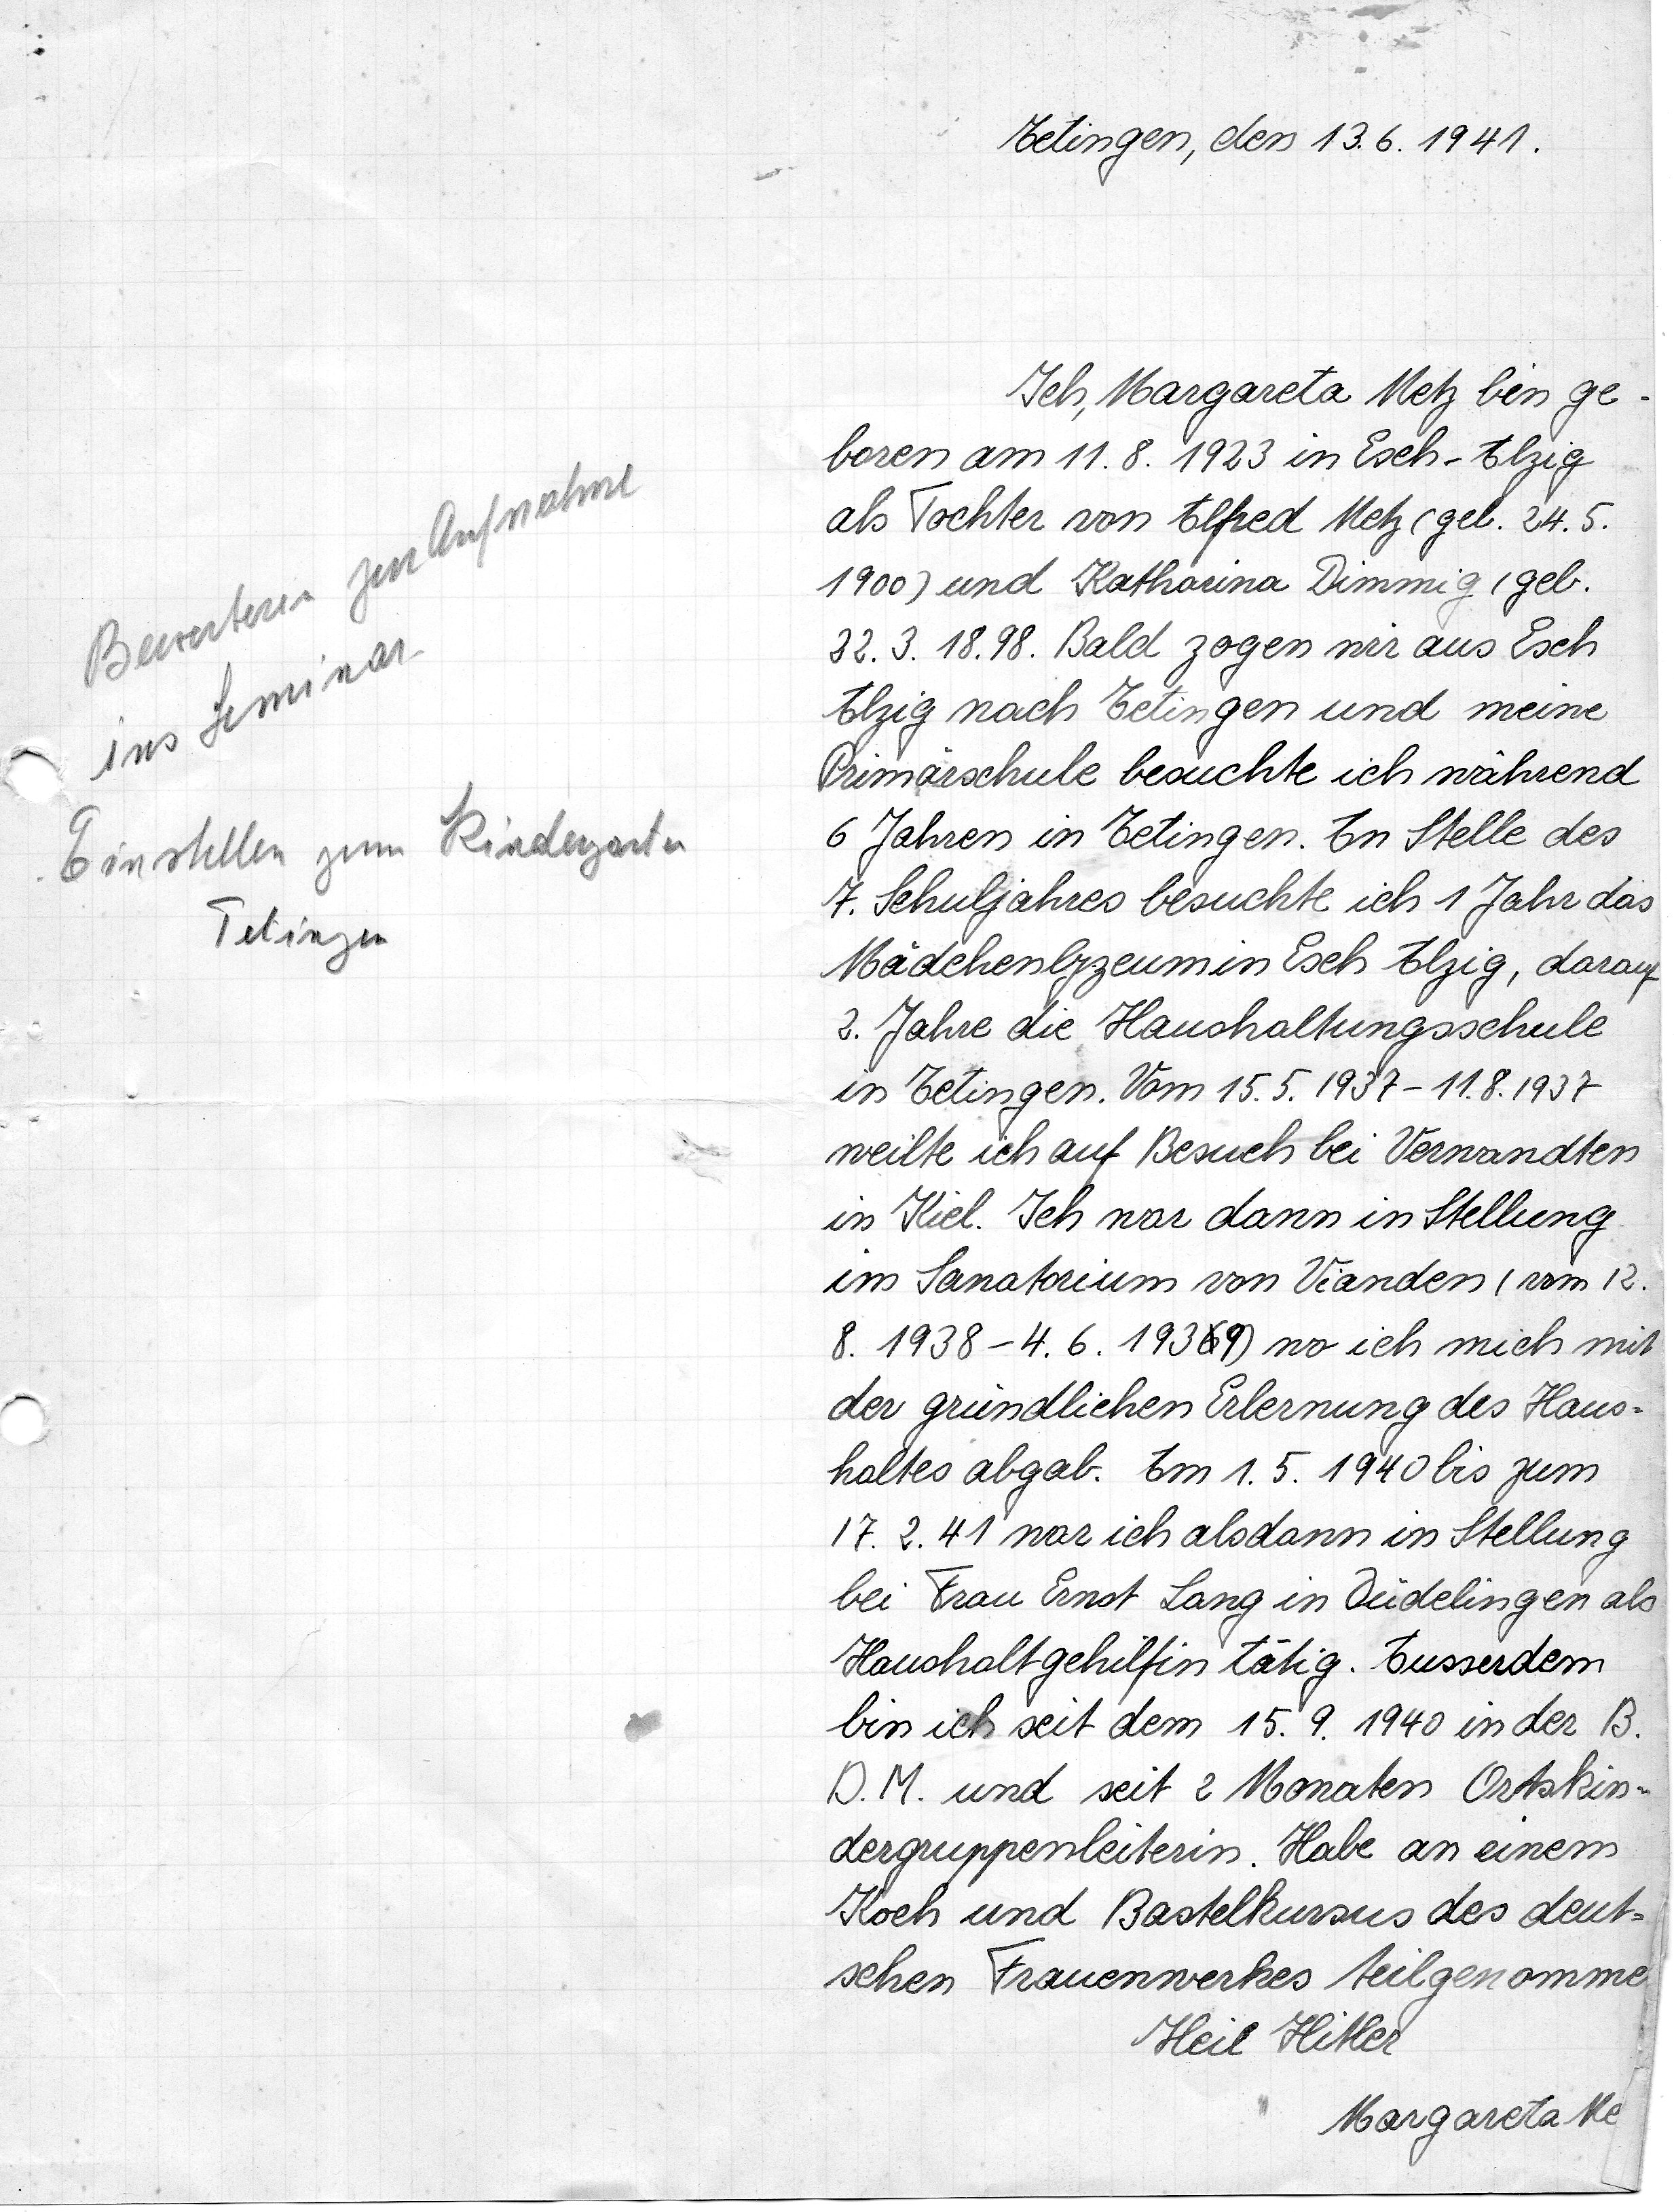 Tetingen, den 13.6. 1941.
Ich, Margareta Metz bin ge-
boren am 11. 8. 1923 in Esch-Alzig
als Tochter von Alfred Metz (geb. 24. 5.
1900) und Katharina Dimmig (geb.
22. 3. 18.98. Bald zogen wir aus Esch
Alzig nach Tetingen und meine
Primärschule besuchte ich während
6 Jahren in Tetingen. An Stelle des
7. Schuljahres besuchte ich 1 Jahr das
Mädchenlyzeum in Esch Alzig, darauf
2. Jahre die Haushaltungsschule
in Tetingen. Vom 15. 5. 1937 - 11. 8. 1937
weilte ich auf Besuch bei Verwandten
in Kiel. Ich war dann in Stellung
im Sanatorium von Vianden (vom 12.
8. 1938 - 4. 6. 1939) wo ich mich mit
der gründlichen Erlernung des Haus-
haltes abgab. Am 1. 5. 1940 bis zum
17. 2. 41 war ich alsdann in Stellung
bei Frau Ernst Lang in Düdelingen als
Haushaltgehilfin tätig. Ausserdem
bin ich seit dem 15. 9. 1940 in der B.
D.M. und seit 2 Monaten Ortskin-
dergruppenleiterin. Habe an einem
Koch und Bastelkursus des deut-
schen Frauenwerkes teilgenomme
Heil Hitler
Margareta Me
Bewerberin zur Aufnahme
ins Seminar
Einstellen zum Kindergarten
Tetingen